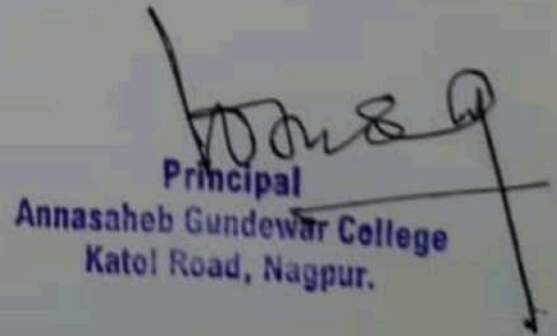 Principal
Annasaheb Gundewar College
Katol Road, Nagpur.